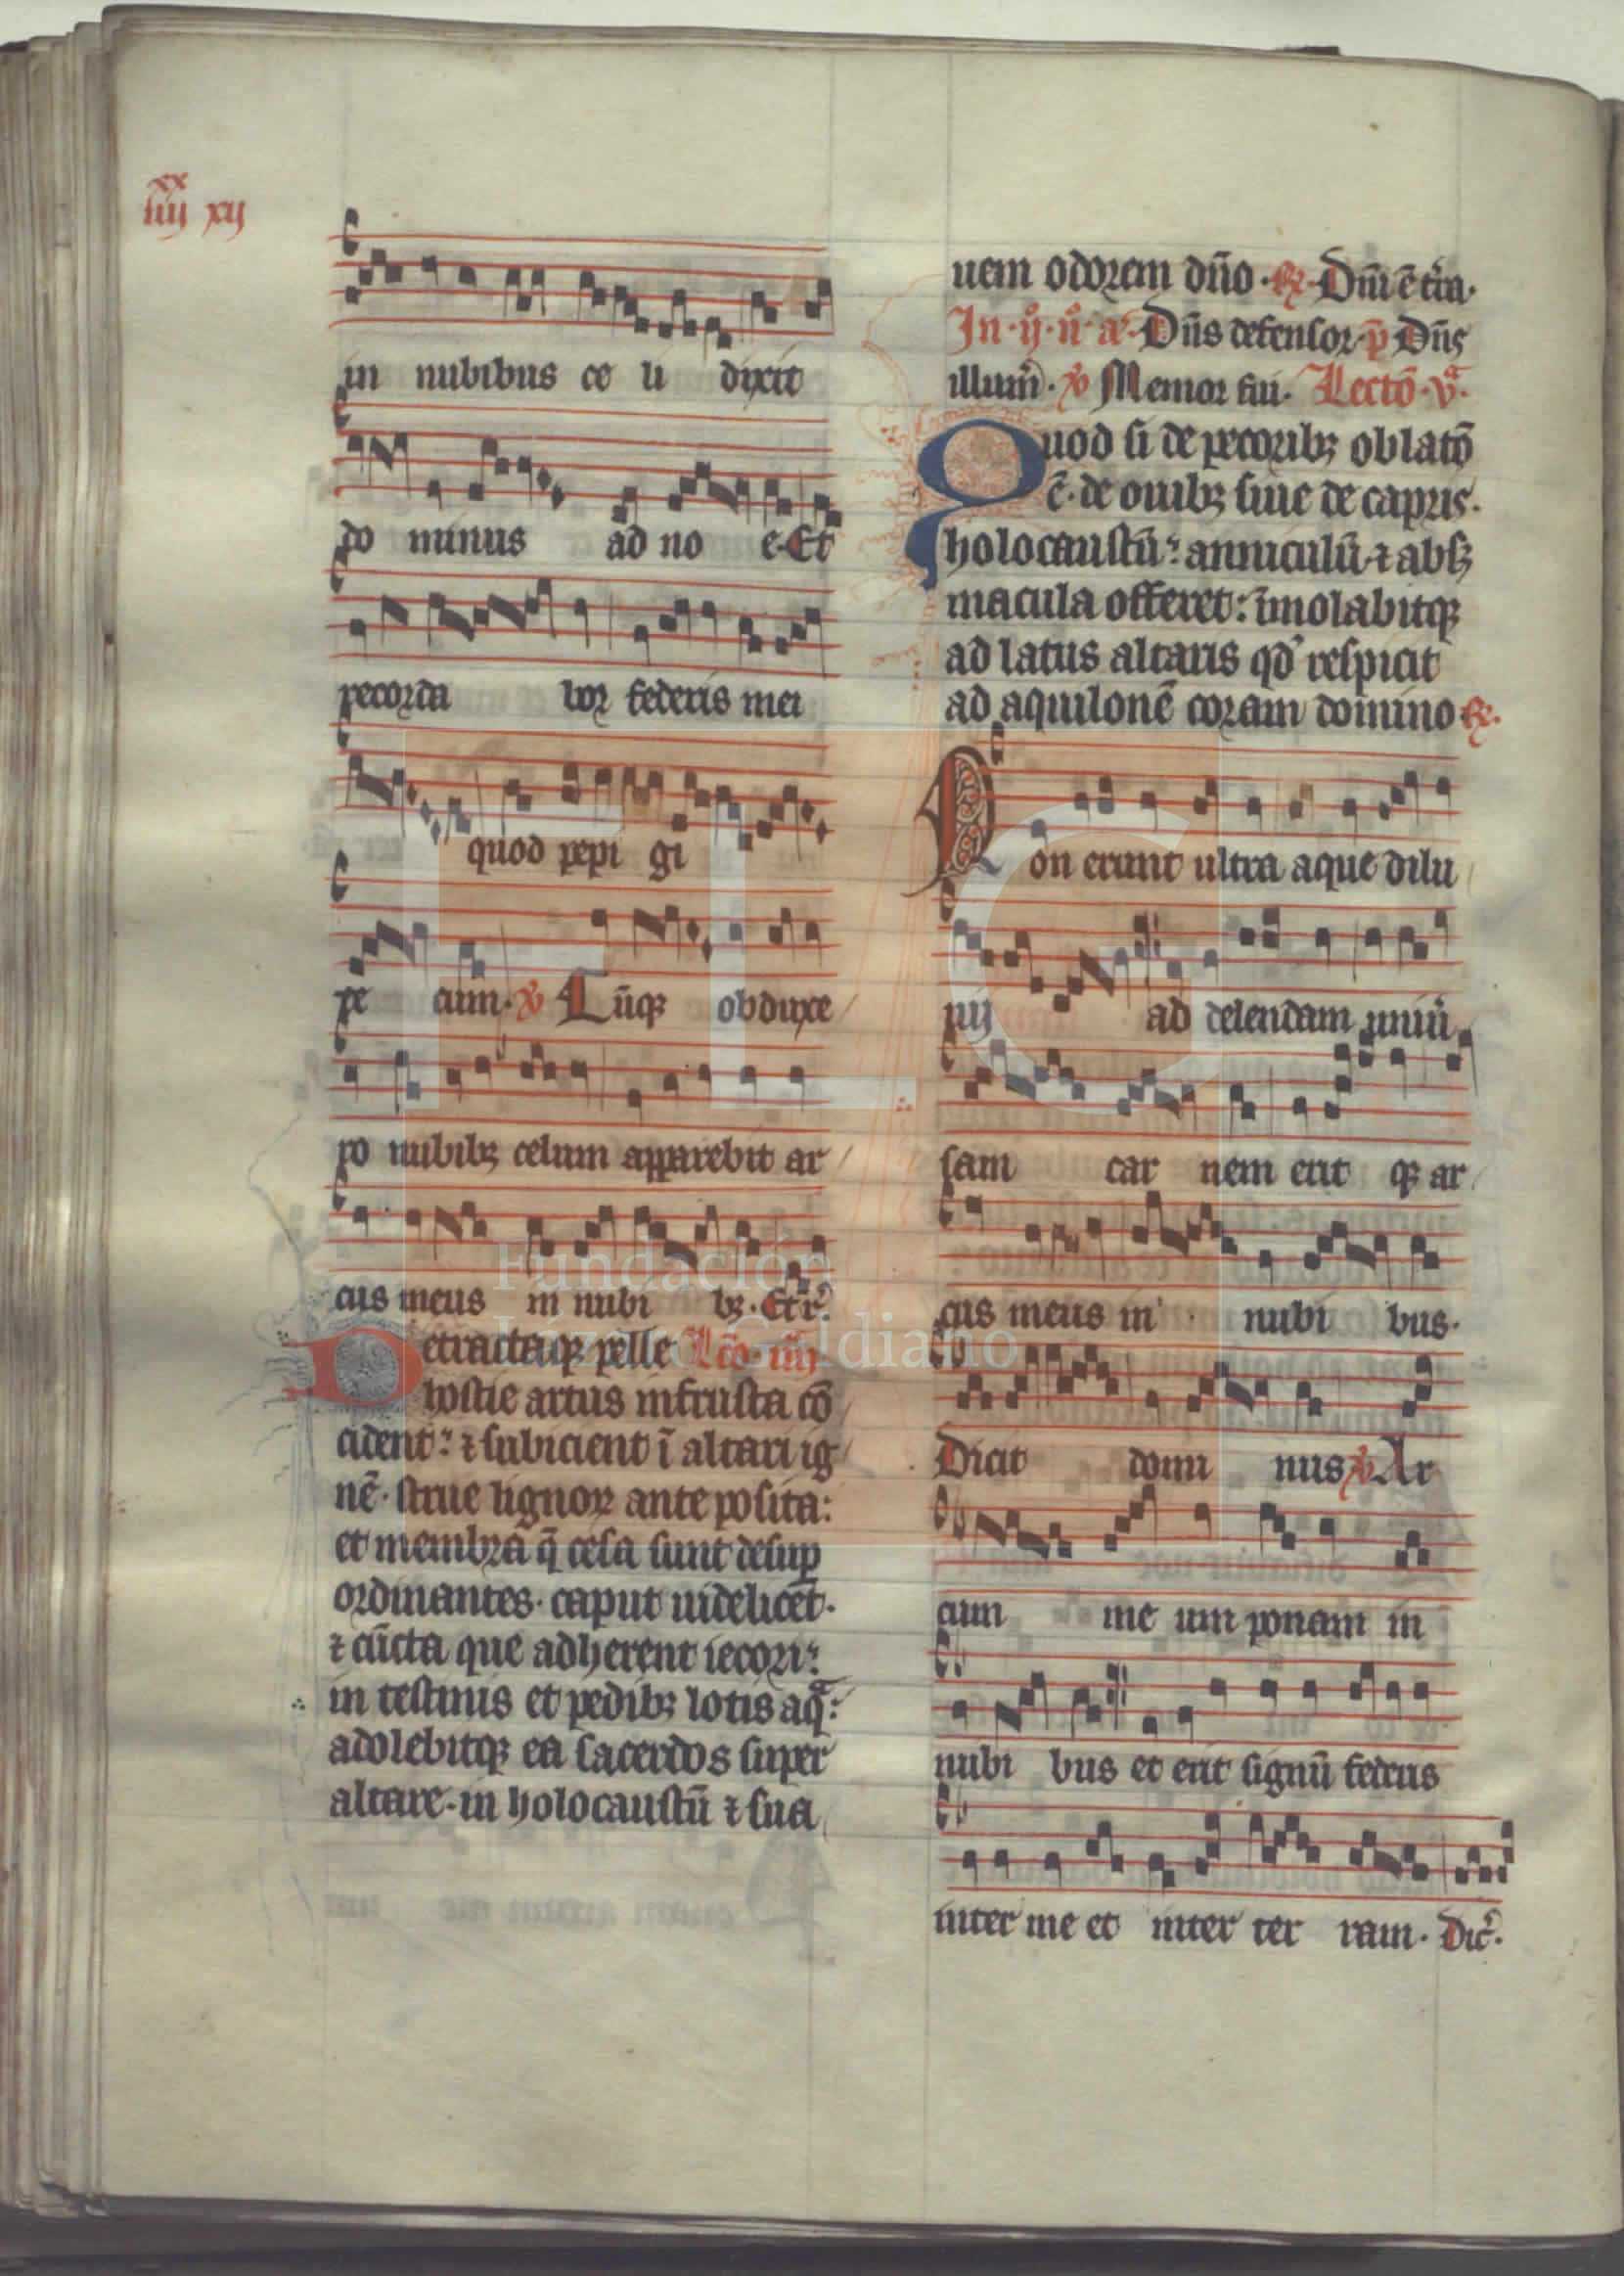 xx
iiij xij
in nubibus ce li dixit
do minus ad no e. Et
recorda bor federis mei
quod pepi gi
pe cum. ℣ Cūqꝫ obduxe
ro nubibꝫ celum apparebit ar
cus meus in nubi bꝫ. Et r̄.
etractaqꝫ pelle Lc̄o. iiij
D hostie artus infrusta cō
cident: ⁊ subicient ī altari ig
nē. strue lignoꝝ ante posita:
et membra q̄ cesa sunt desuꝑ
ordinantes. caput uidelicet.
⁊ cūcta que adherent iecori:
in testinis et pedibꝫ lotis aqᵃ:
adolebitqꝫ ea sacerdos super
altare. in holocaustū ⁊ sua
uem odorem dn̄o. ℟. Dn̄i ē t̄ra.
In. ij. n̊. aᵃ. Dn̄s defensor. p̄ Dn̄s
illum̄. ℣ Memor fui. Lectō. vᵃ.
Quod si de pecoribꝫ oblatō
ē. de ouibꝫ siue de capris.
holocaustū: anniculū ⁊ absqꝫ
macula offeret: īmolabitqꝫ
ad latus altaris qd̓ respicit
ad aquilonē coram domino ℟.
Non erunt ultra aque dilu
uij ad delendam uniu̓
sam car nem erit qꝫ ar
cus meus in nubi bus.
Dicit domi nus ℣ Ar
cum me um ponam in
nubi bus et erit signū federis
inter me et inter ter ram. Dic̄.
FLG
Fundación
Lázaro Galdiano